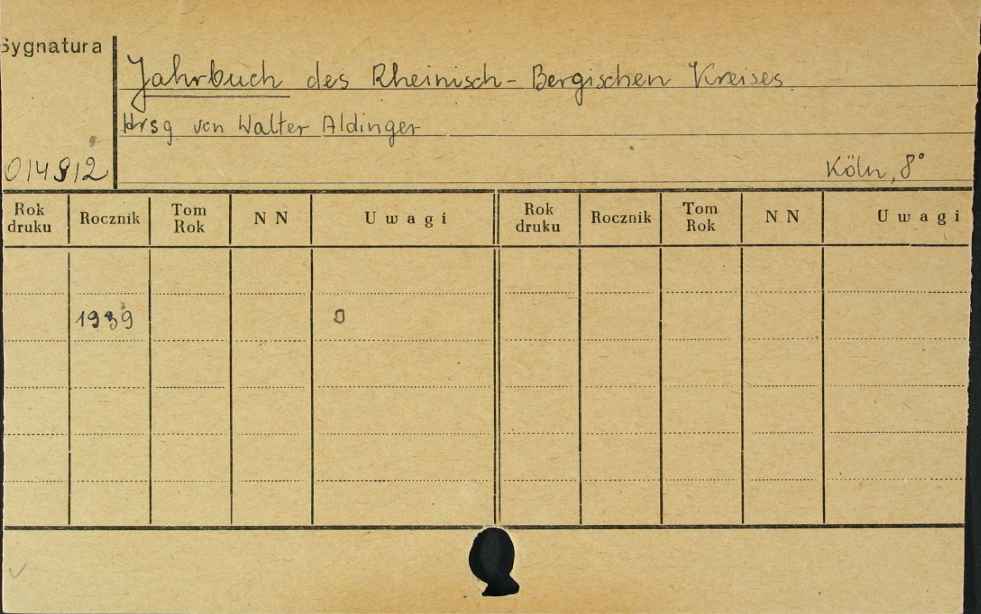 Sygnatura
Jahrbuch des Rheinisch-Bergischen Kreises
Hrsg von Walter Aldinger
014912
Köln, 8°
Rok druku Rocznik Tom Rok NN Uwagi Rok druku Rocznik Tom Rok NN Uwagi
1939 0